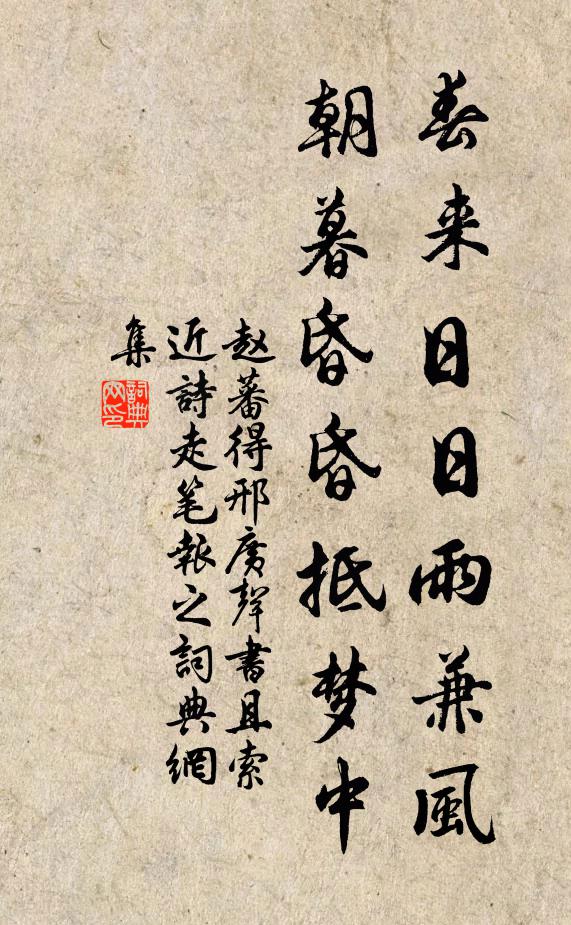 春来日日雨兼風
朝暮昏昏抵梦中
赵蕃得邢廣聲書且索
近詩走笔報之詞典網
集
詞典
网印